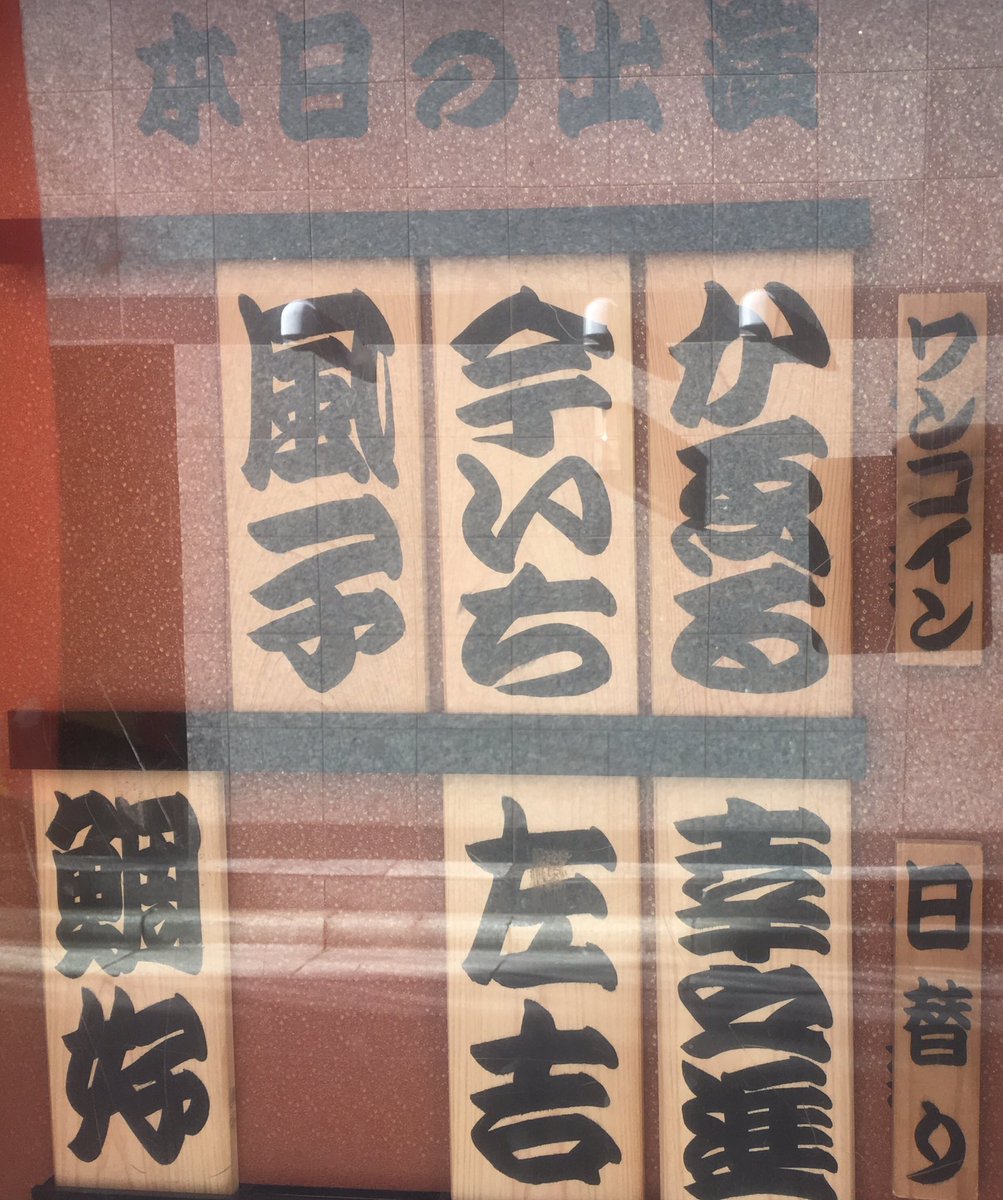 本日の出演
ワンコイン
日替り
今いち
風子
幸之進
左吉
鯉好